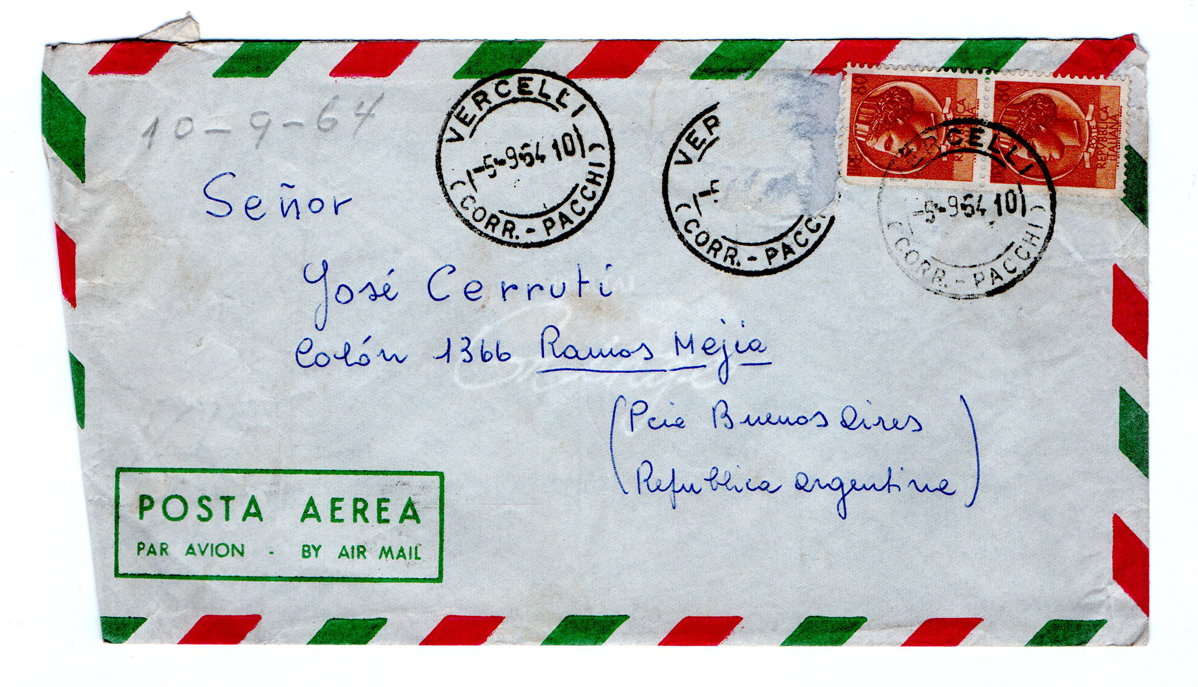 10-9-64
VERCELLI
-5-9-64 10
(CORR.-PACCHI)
VER
-5
(CORR.-PACC
80
POSTE
REPVBBLICA
ITALIANA
80
VERCELLI
-5-9-64 10
(CORR.-PACCHI)
Señor
José Cerruti
Colón 1366 Ramos Mejia
(Pcia Buenos Aires
Republica Argentina)
POSTA AEREA
PAR AVION - BY AIR MAIL